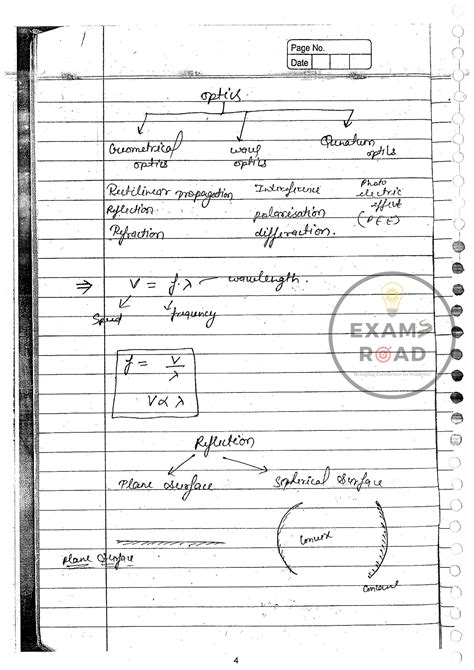 1
Page No.
Date
optics
Geometrical optics
wave optics
Quantum optics
Rectilinear propagation
Reflection
Refraction
Interference
polarisation
diffraction.
Photo electric effect (PEE)
⇒ V = f.λ — wavelength.
Speed frequency
f = V/λ
V ∝ λ
EXAMS ROAD
Reflection
Plane Surface
Spherical Surface
Plane Surface
Convex
Concave
4